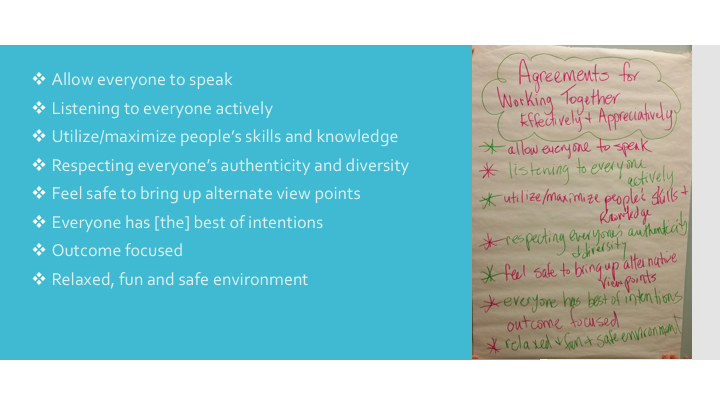 ❖ Allow everyone to speak
❖ Listening to everyone actively
❖ Utilize/maximize people's skills and knowledge
❖ Respecting everyone's authenticity and diversity
❖ Feel safe to bring up alternate view points
❖ Everyone has [the] best of intentions
❖ Outcome focused
❖ Relaxed, fun and safe environment
Agreements for
Working Together
Effectively + Appreciatively
* allow everyone to speak
* listening to everyone
actively
* utilize/maximize people's skills +
knowledge
* respecting everyone's authenticity
+ diversity
* feel safe to bring up alternative
viewpoints
* everyone has best of intentions
outcome focused
* relaxed + fun + safe environment